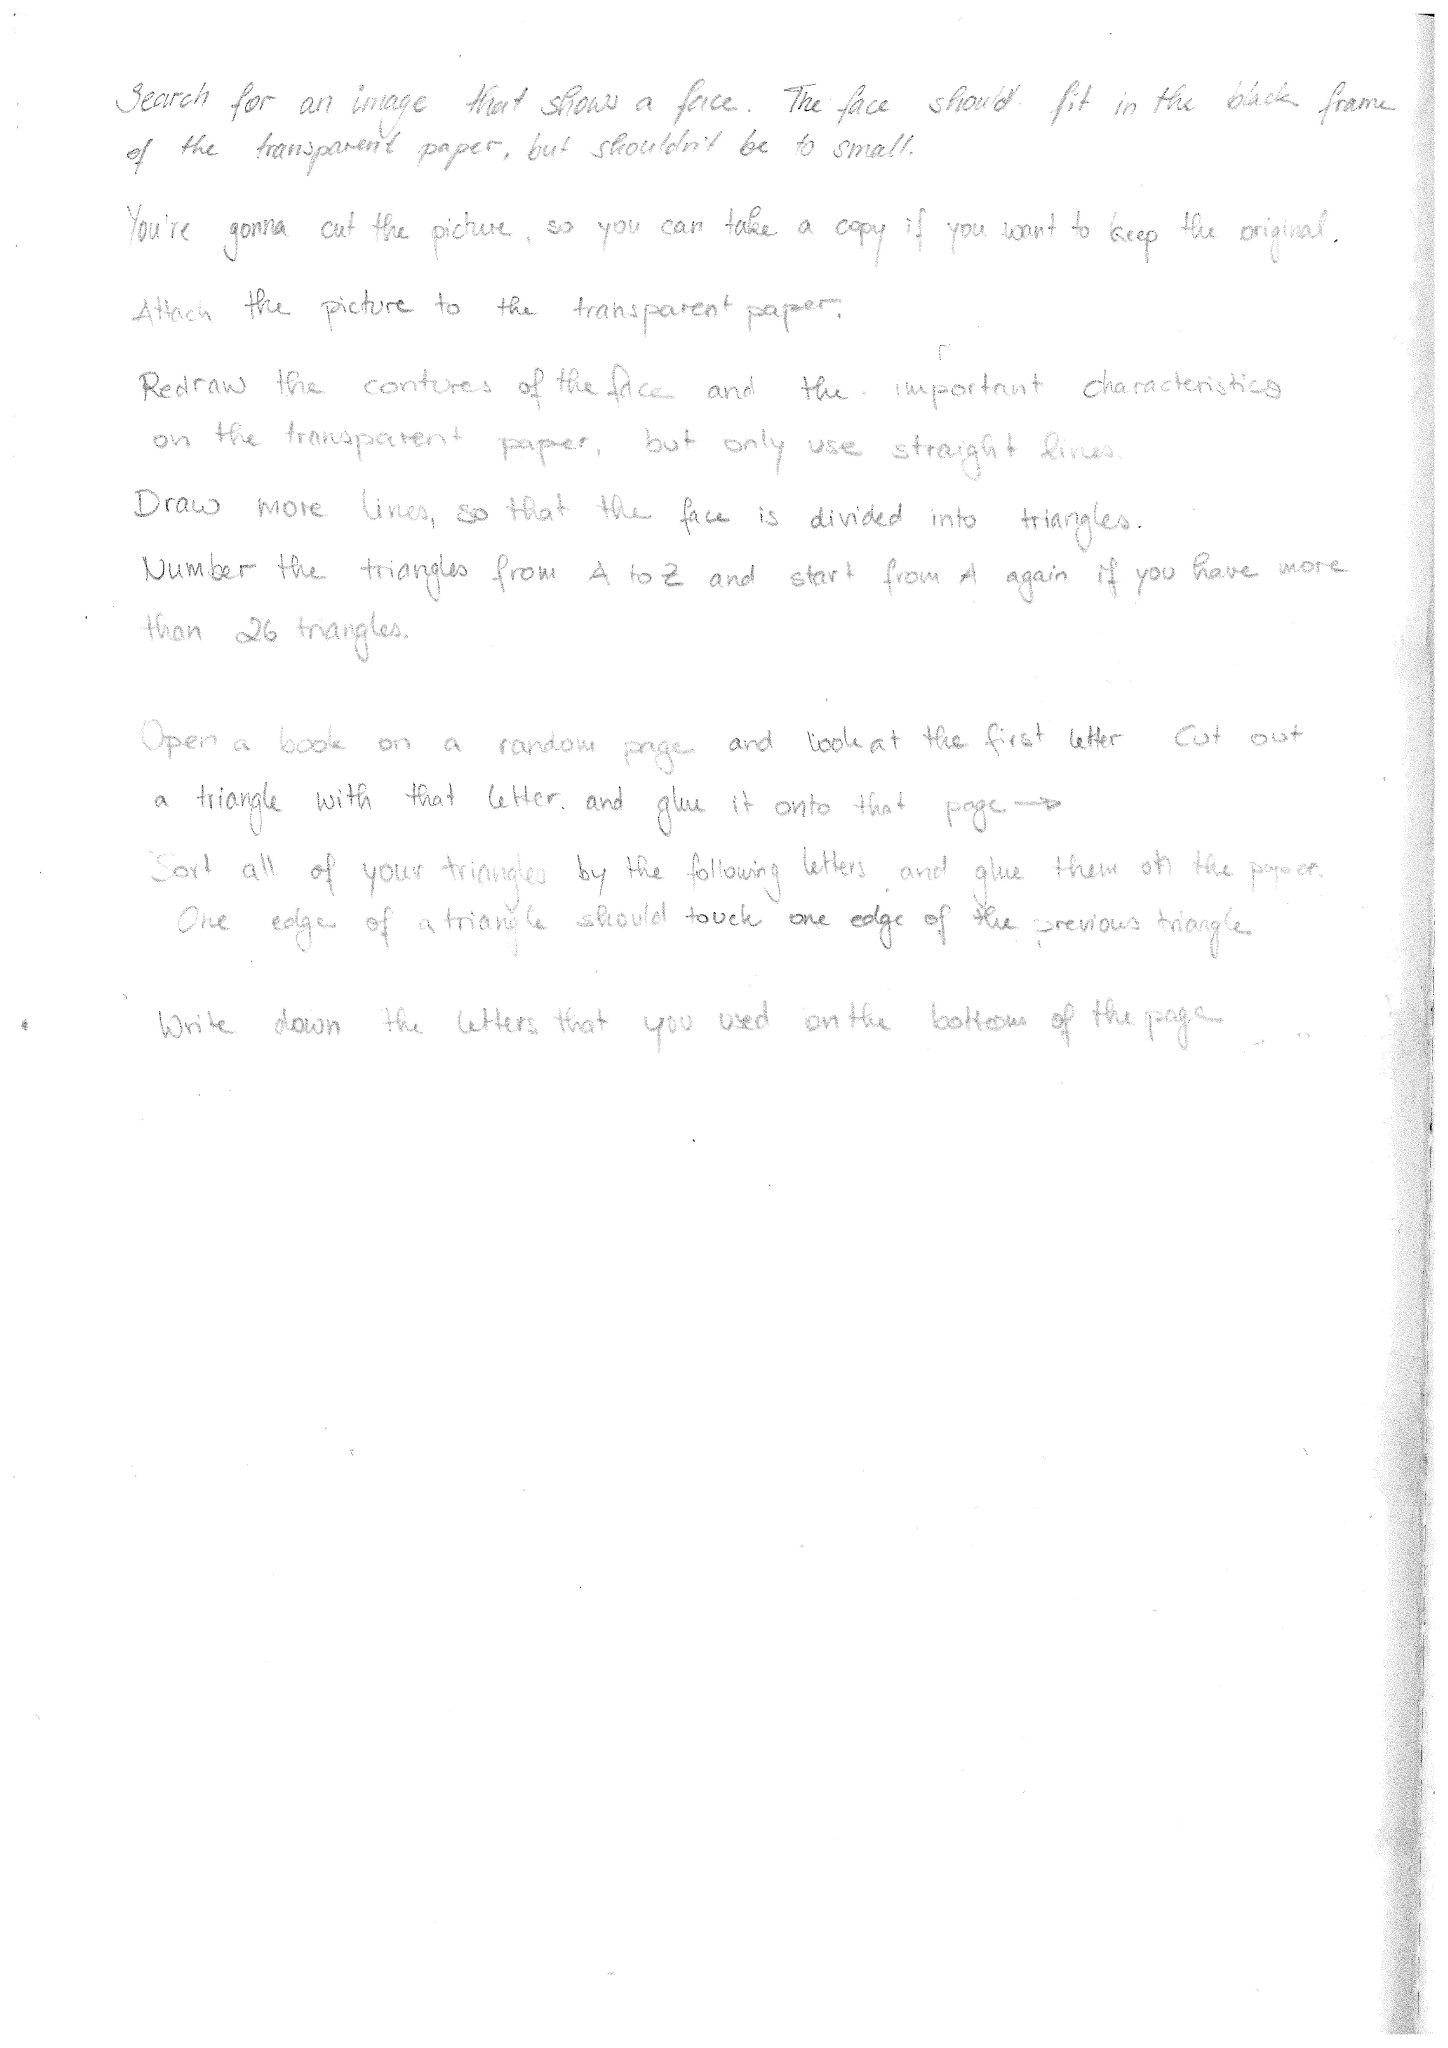 Search for an image that shows a face. The face should fit in the black frame
of the transparent paper, but shouldn't be to small.
You're gonna cut the picture, so you can take a copy if you want to keep the original.
Attach the picture to the transparent paper.
Redraw the contures of the face and the important characteristics
on the transparent paper, but only use straight lines.
Draw more lines, so that the face is divided into triangles.
Number the triangles from A to Z and start from A again if you have more
than 26 triangles.
Open a book on a random page and look at the first letter Cut out
a triangle with that letter. and glue it onto that page →
Sort all of your triangles by the following letters and glue them on the paper.
One edge of a triangle should touch one edge of the previous triangle
Write down the letters that you used on the bottom of the page